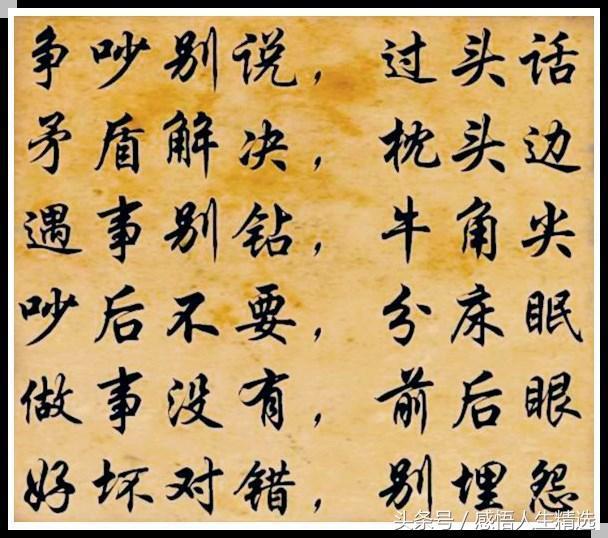 争吵别说，过头话
矛盾解决，枕头边
遇事别钻，牛角尖
吵后不要，分床眠
做事没有，前后眼
好坏对错，别埋怨
头条号 / 感悟人生精选